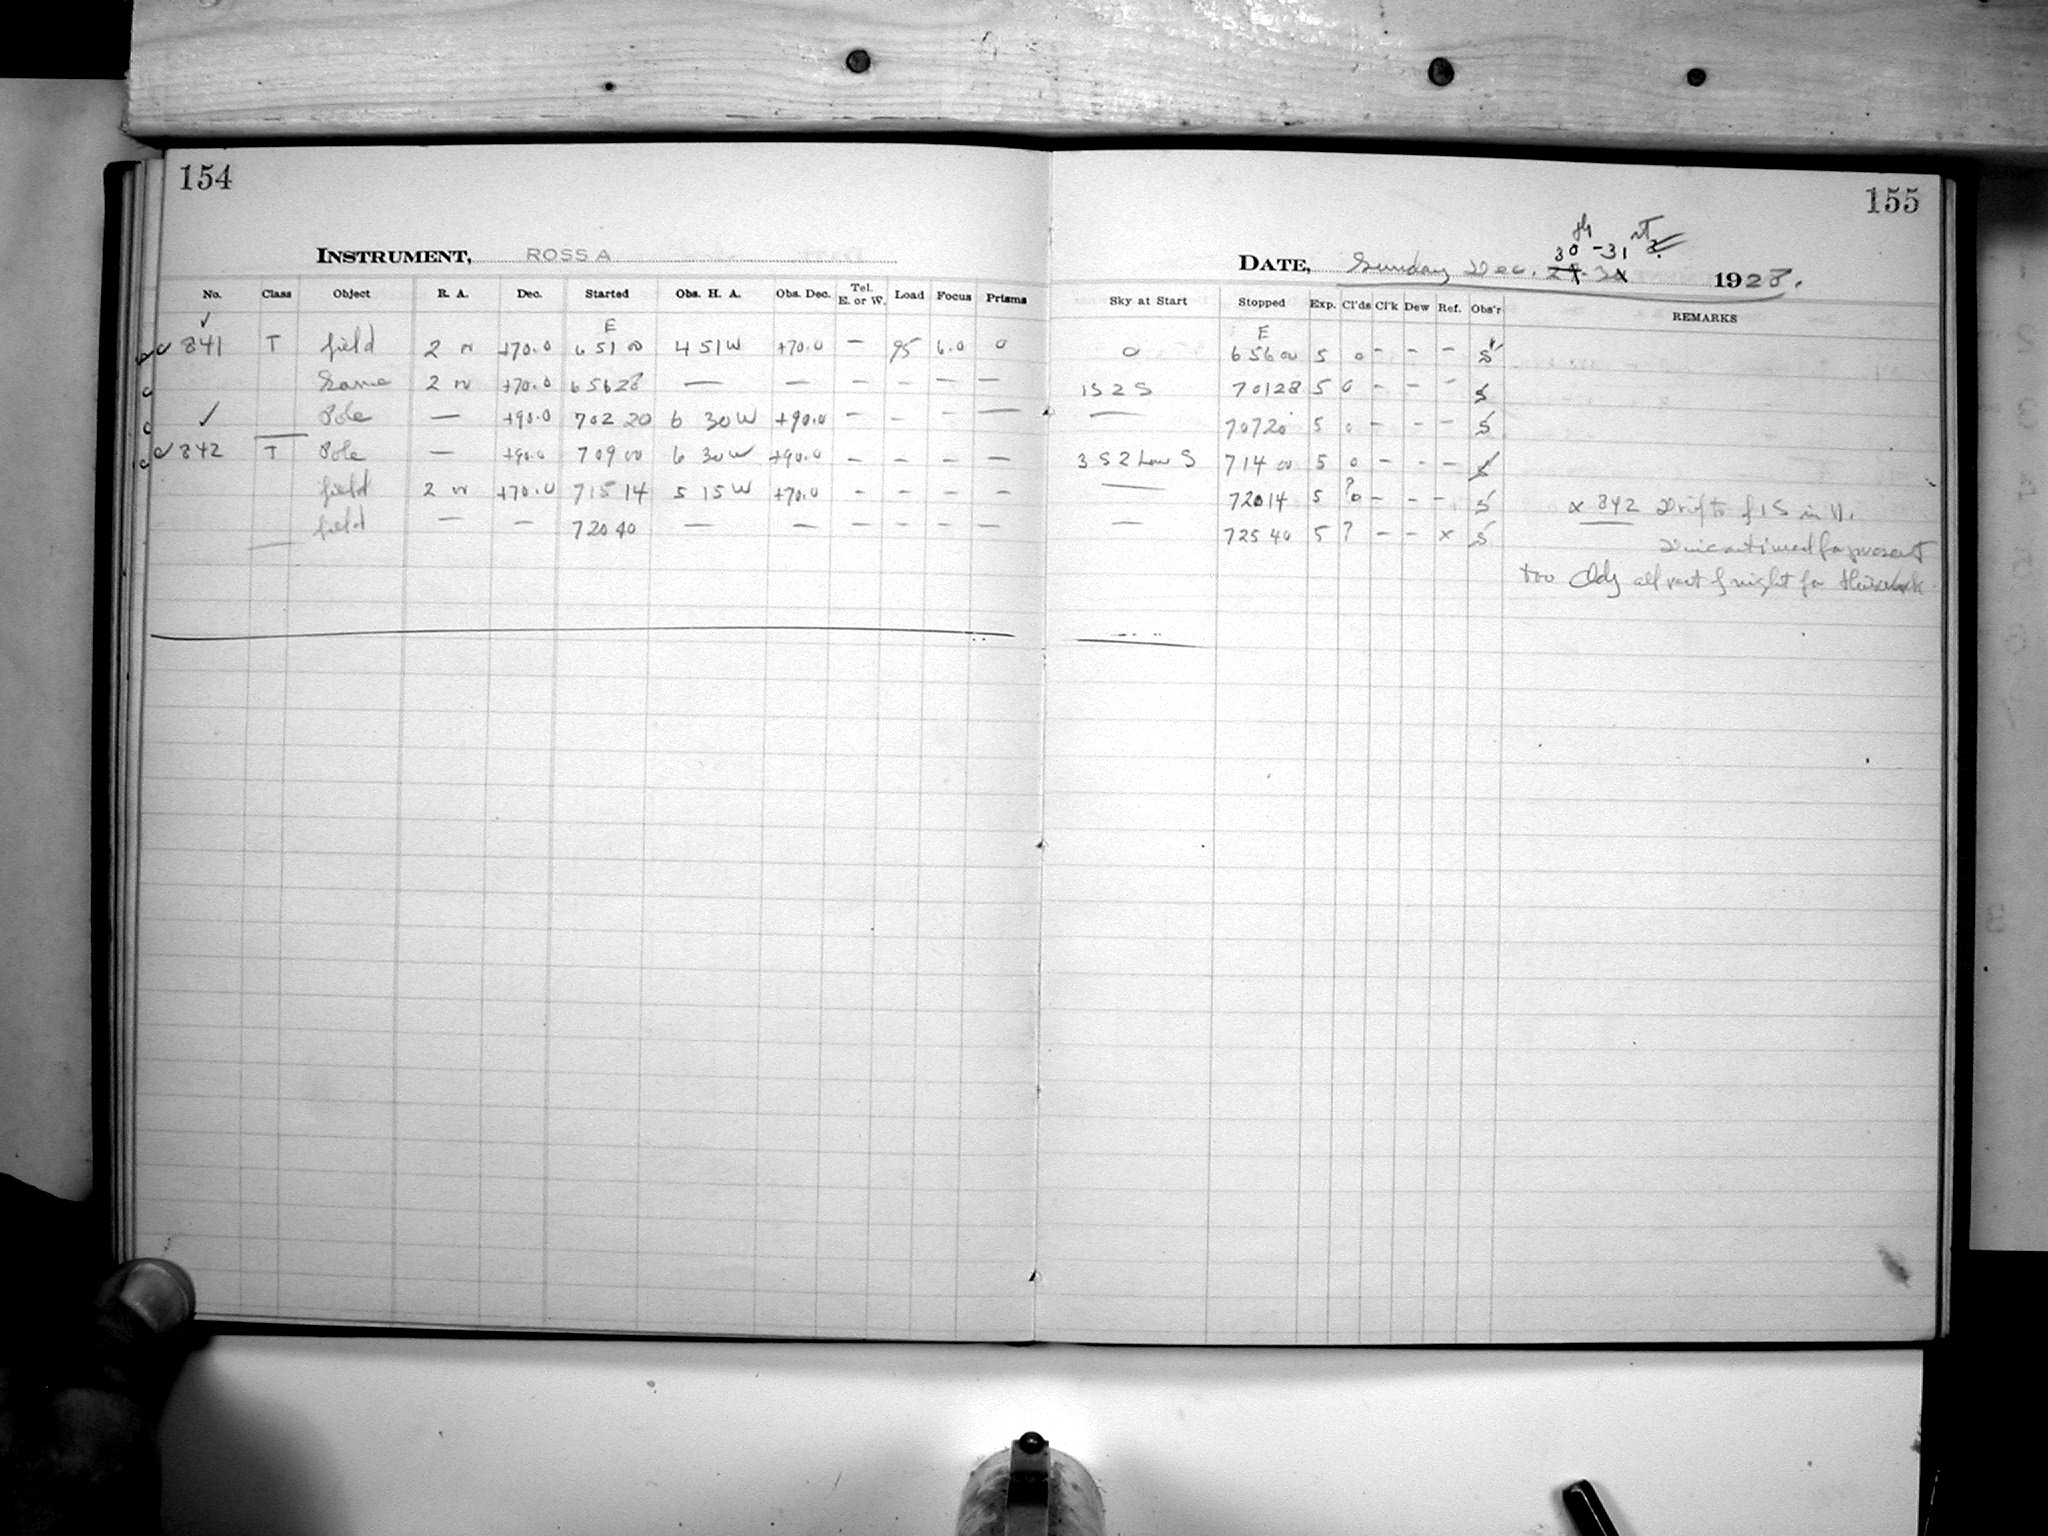 154
155
INSTRUMENT, ROSS A
th st
30 -31
DATE, Sunday Dec. 29-30 1928.
No. Class Object R. A. Dec. Started Obs. H. A. Obs. Dec. Tel. E. or W. Load Focus Prisms Sky at Start Stopped Exp. Cl'ds Cl'k Dew Ref. Obs'r REMARKS
✓ E E
841 T field 2 n +70.0 6 51 00 4 51 W +70.0 — 95 6.0 0 0 6 56 00 5 0 - - - S
Same 2 n +70.0 6 56 28 — — - - - — 1S 2 S 7 01 28 5 0 - - - S
✓ Pole — +90.0 7 02 20 6 30 W +90.0 - - - — — 7 07 20 5 0 - - - S
842 T Pole — +90.0 7 09 00 6 30 W +90.0 - - - — 3 S 2 Low S 7 14 00 5 0 - - - S
field 2 n +70.0 7 15 14 5 15 W +70.0 - - - — — 7 20 14 5 ?0 - - - S x 842 Drifts of 1S in 11.
field — — 7 20 40 — — - - - — — 7 25 40 5 ? - - x S Discontinued for present
too Cldy all part of night for this work